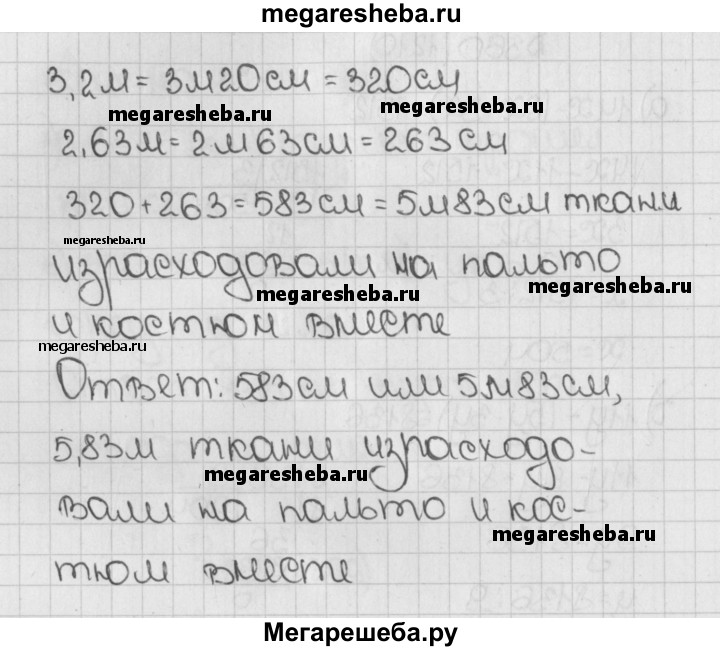 megaresheba.ru
3,2м = 3м20см = 320см
megaresheba.ru
megaresheba.ru
2,63м = 2м63см = 263см
320+263=583см=5м83см ткани
megaresheba.ru
израсходовали на пальто
megaresheba.ru
megaresheba.ru
и костюм вместе
megaresheba.ru
Ответ: 583см или 5м83см,
5,83м ткани израсходо-
megaresheba.ru
вали на пальто и кос-
megaresheba.ru
тюм вместе
Мегарешеба.ру